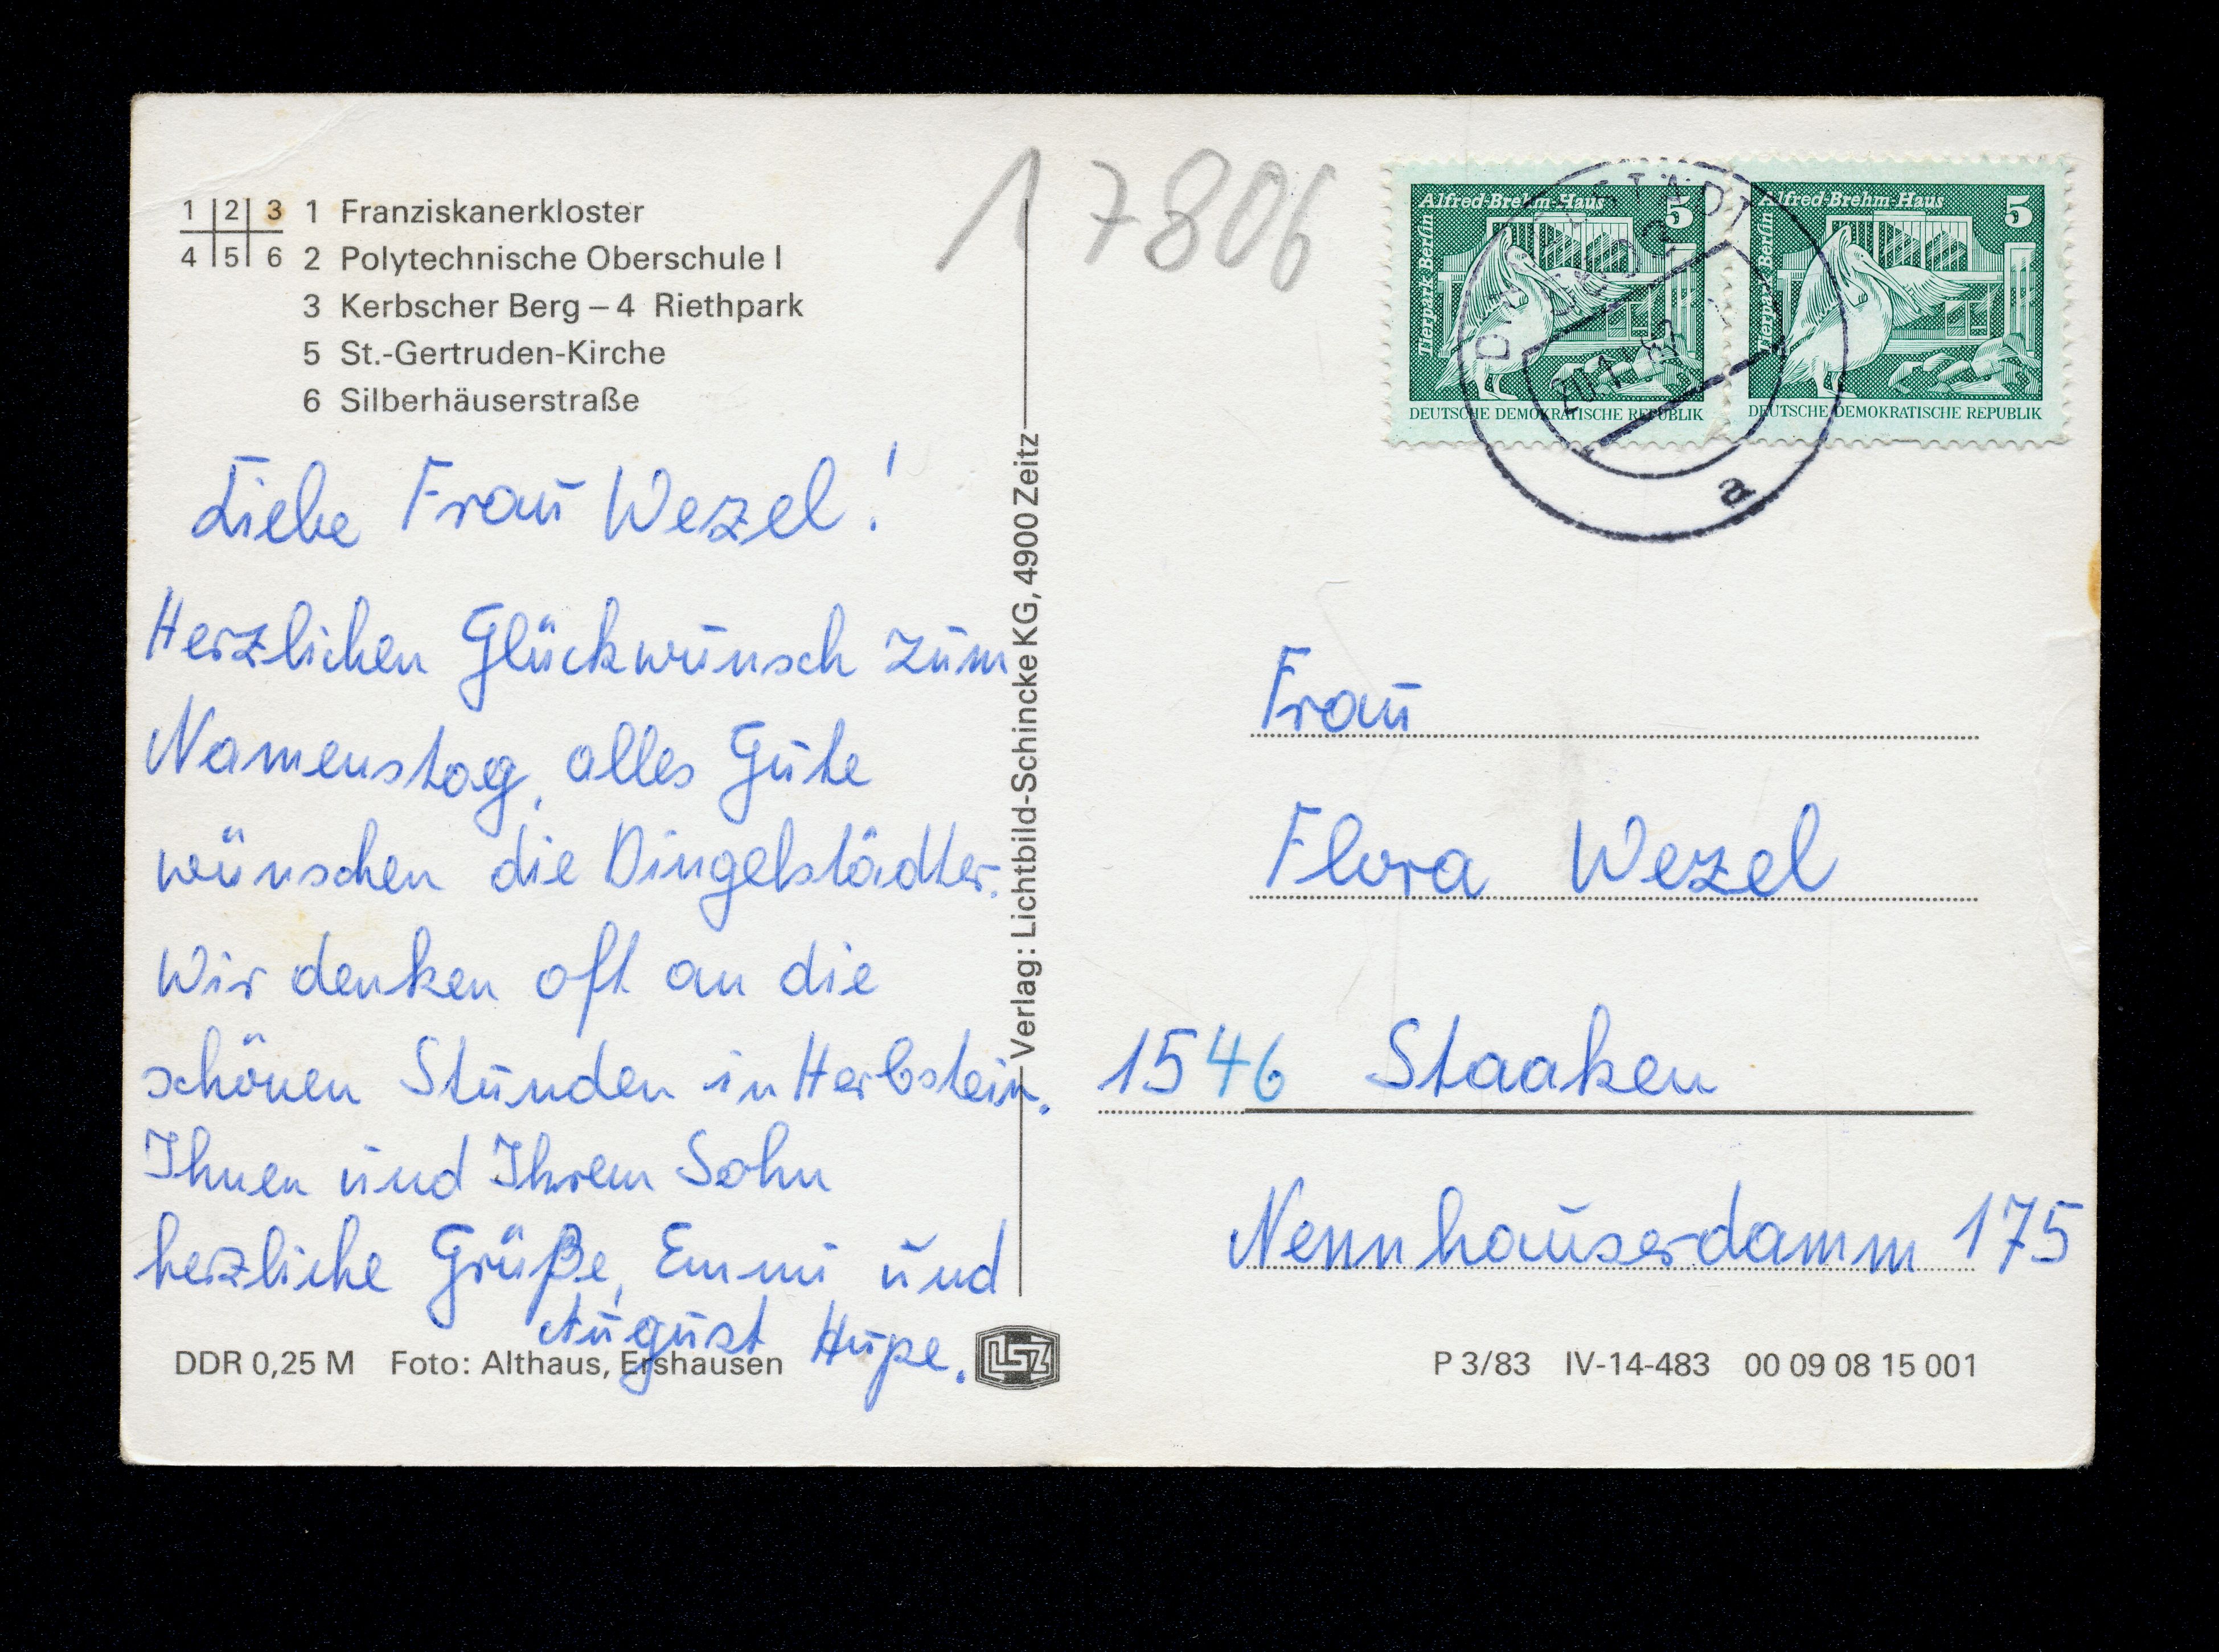 1 2 3 1 Franziskanerkloster
4 5 6 2 Polytechnische Oberschule I
3 Kerbscher Berg – 4 Riethpark
5 St.-Gertruden-Kirche
6 Silberhäuserstraße
Liebe Frau Wezel!
Herzlichen Glückwunsch zum
Namenstag, alles Gute
wünschen die Dingelstädter.
Wir denken oft an die
schönen Stunden in Herbstein.
Ihnen und Ihrem Sohn
herzliche Grüße, Emmi und
August Hupe.
DDR 0,25 M Foto: Althaus, Ershausen
LSZ
Verlag: Lichtbild-Schincke KG, 4900 Zeitz
17806
Alfred-Brehm-Haus 5
Tierpark Berlin
DEUTSCHE DEMOKRATISCHE REPUBLIK
Alfred-Brehm-Haus 5
Tierpark Berlin
DEUTSCHE DEMOKRATISCHE REPUBLIK
a
Frau
Flora Wezel
1546 Staaken
Nennhauserdamm 175
P 3/83 IV-14-483 00 09 08 15 001